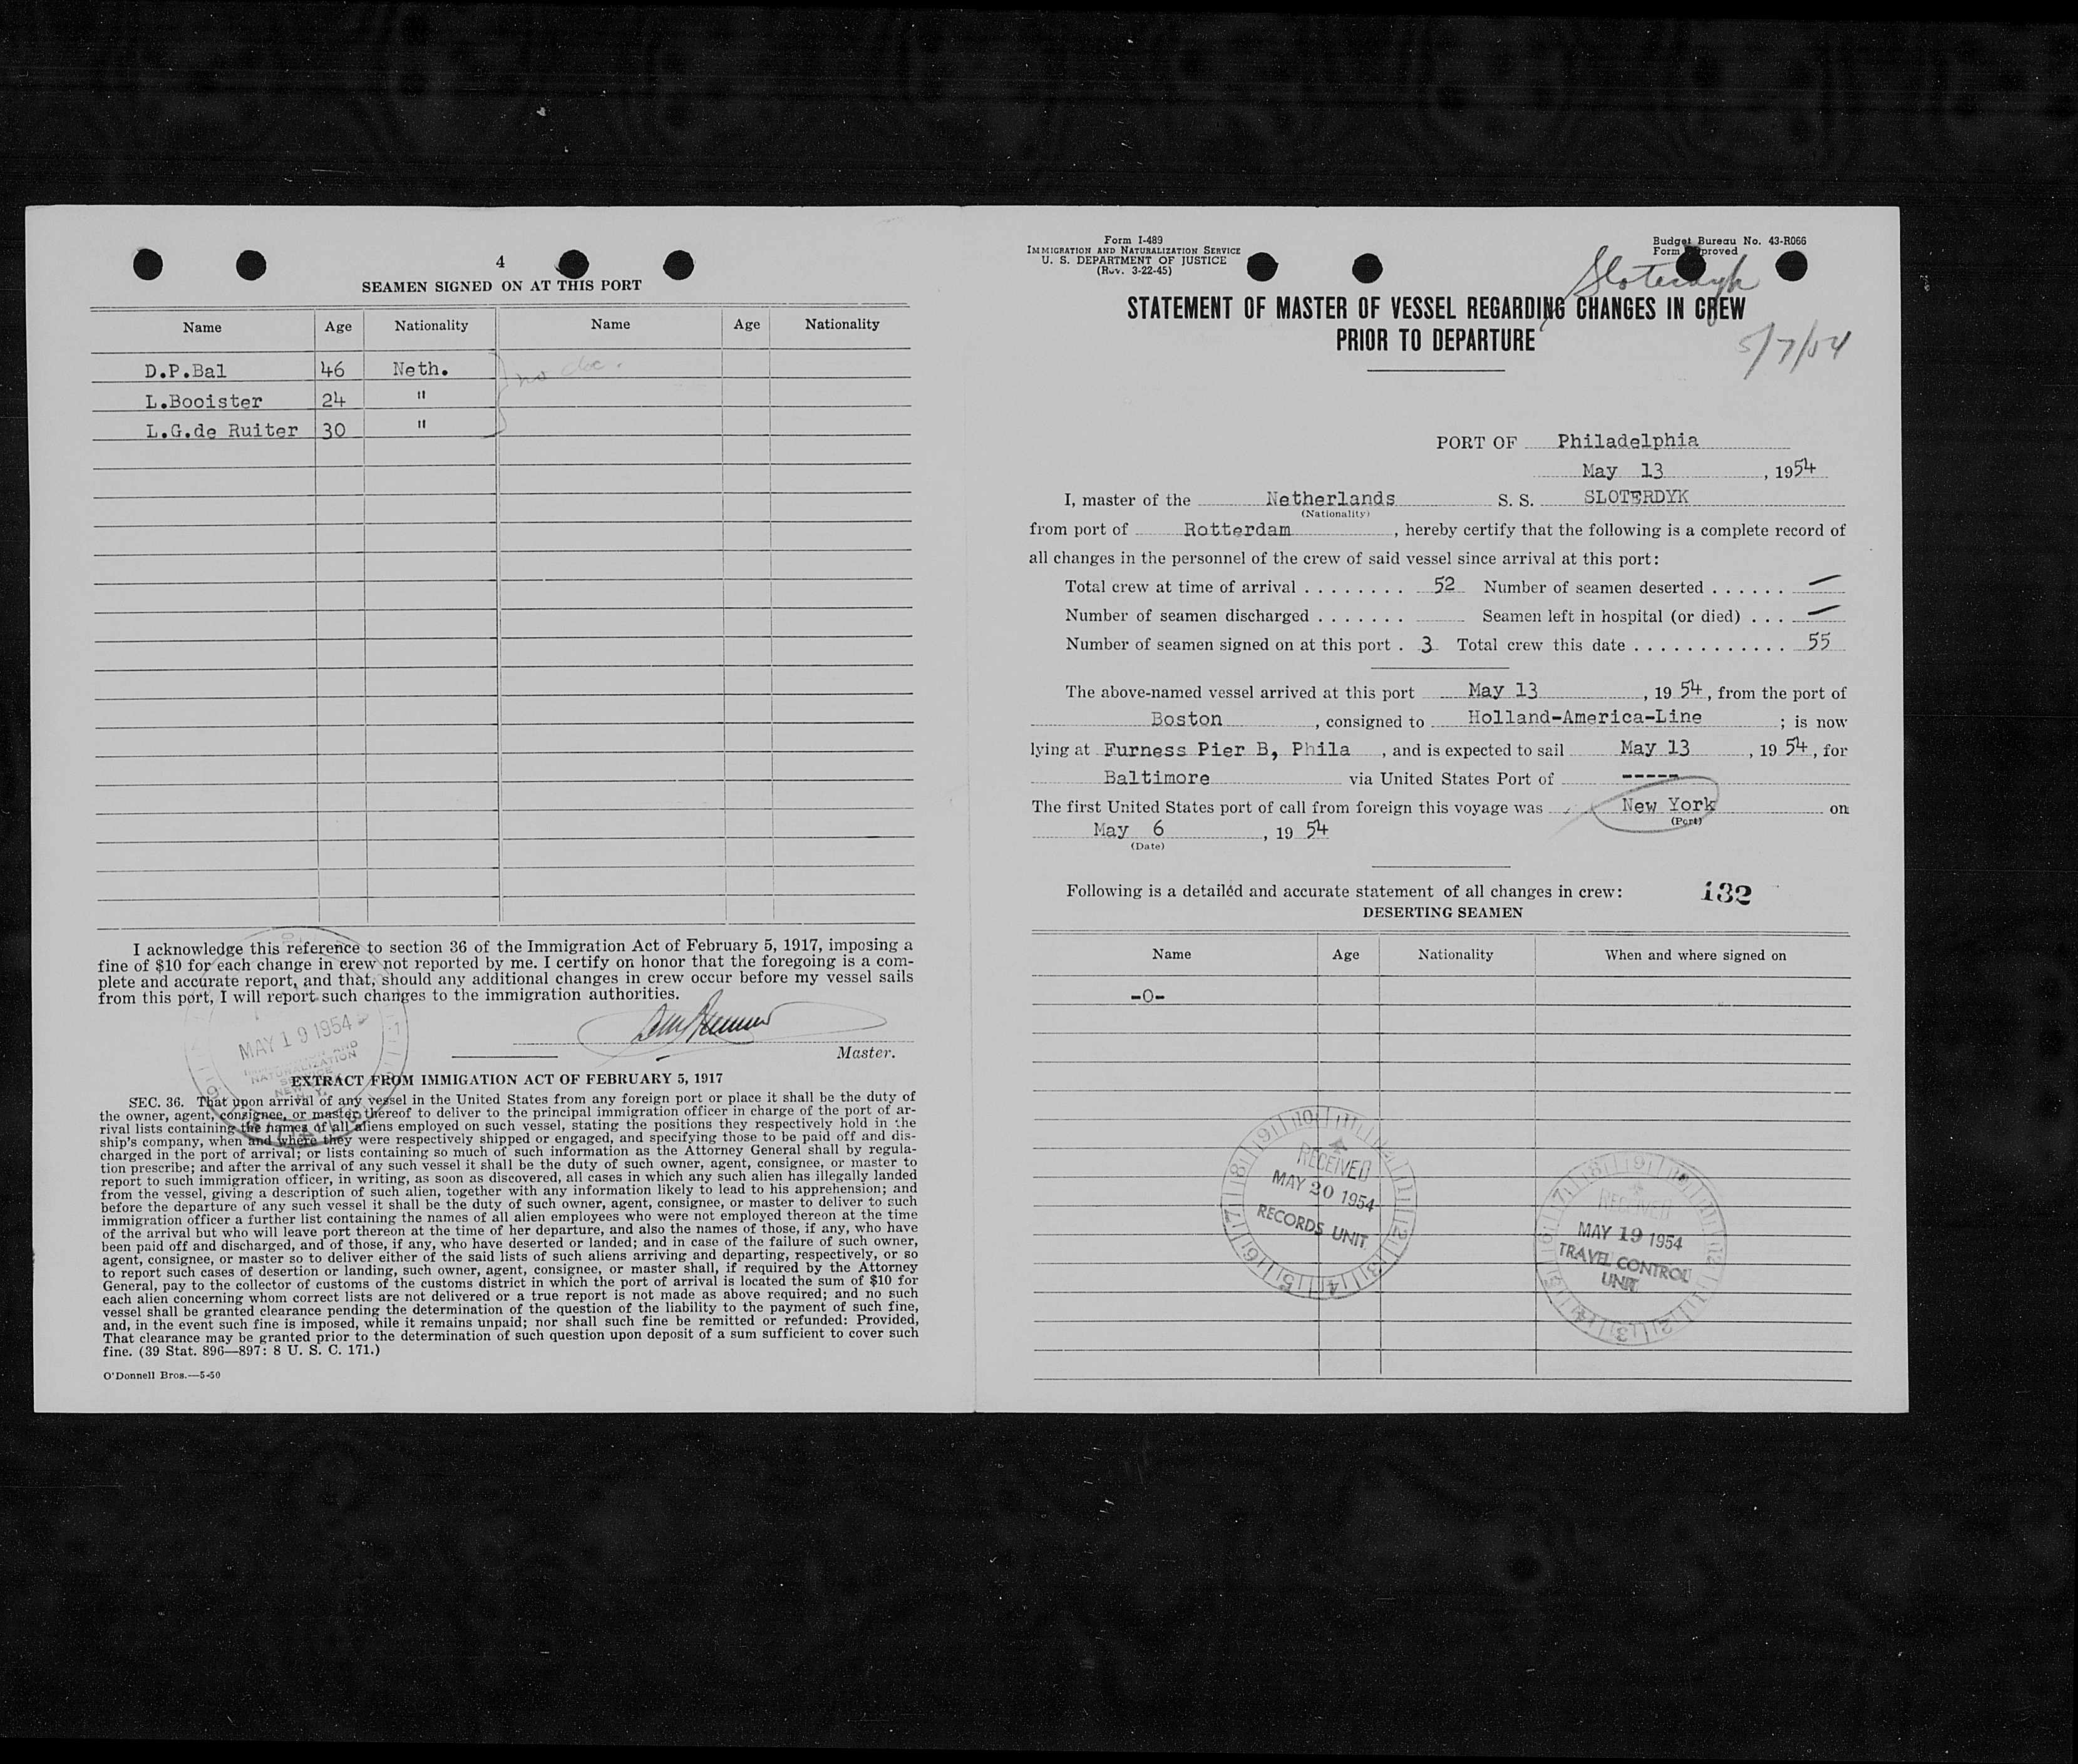 4
SEAMEN SIGNED ON AT THIS PORT
Name Age Nationality Name Age Nationality
D.P.Bal 46 Neth. no
L.Booister 24 "
L.G.de Ruiter 30 "
I acknowledge this reference to section 36 of the Immigration Act of February 5, 1917, imposing a
fine of $10 for each change in crew not reported by me. I certify on honor that the foregoing is a com-
plete and accurate report, and that, should any additional changes in crew occur before my vessel sails
from this port, I will report such changes to the immigration authorities.
MAY 19 1954
IMMIGRATION AND
NATURALIZATION
SERVICE
NEW YORK
Master.
EXTRACT FROM IMMIGATION ACT OF FEBRUARY 5, 1917
SEC. 36. That upon arrival of any vessel in the United States from any foreign port or place it shall be the duty of
the owner, agent, consignee, or master thereof to deliver to the principal immigration officer in charge of the port of ar-
rival lists containing the names of all aliens employed on such vessel, stating the positions they respectively hold in the
ship's company, when and where they were respectively shipped or engaged, and specifying those to be paid off and dis-
charged in the port of arrival; or lists containing so much of such information as the Attorney General shall by regula-
tion prescribe; and after the arrival of any such vessel it shall be the duty of such owner, agent, consignee, or master to
report to such immigration officer, in writing, as soon as discovered, all cases in which any such alien has illegally landed
from the vessel, giving a description of such alien, together with any information likely to lead to his apprehension; and
before the departure of any such vessel it shall be the duty of such owner, agent, consignee, or master to deliver to such
immigration officer a further list containing the names of all alien employees who were not employed thereon at the time
of the arrival but who will leave port thereon at the time of her departure, and also the names of those, if any, who have
been paid off and discharged, and of those, if any, who have deserted or landed; and in case of the failure of such owner,
agent, consignee, or master so to deliver either of the said lists of such aliens arriving and departing, respectively, or so
to report such cases of desertion or landing, such owner, agent, consignee, or master shall, if required by the Attorney
General, pay to the collector of customs of the customs district in which the port of arrival is located the sum of $10 for
each alien concerning whom correct lists are not delivered or a true report is not made as above required; and no such
vessel shall be granted clearance pending the determination of the question of the liability to the payment of such fine,
and, in the event such fine is imposed, while it remains unpaid; nor shall such fine be remitted or refunded: Provided,
That clearance may be granted prior to the determination of such question upon deposit of a sum sufficient to cover such
fine. (39 Stat. 896—897: 8 U. S. C. 171.)
O'Donnell Bros.—5-50
Form I-489
IMMIGRATION AND NATURALIZATION SERVICE
U. S. DEPARTMENT OF JUSTICE
(Rev. 3-22-45)
Budget Bureau No. 43-R066
Form Approved
Sloterdyk
STATEMENT OF MASTER OF VESSEL REGARDING CHANGES IN CREW
PRIOR TO DEPARTURE
5/7/54
PORT OF Philadelphia
May 13, 1954
I, master of the Netherlands S. S. SLOTERDYK
(Nationality)
from port of Rotterdam, hereby certify that the following is a complete record of
all changes in the personnel of the crew of said vessel since arrival at this port:
Total crew at time of arrival ........ 52 Number of seamen deserted ...... —
Number of seamen discharged ....... Seamen left in hospital (or died) ... —
Number of seamen signed on at this port . 3 Total crew this date ............ 55
The above-named vessel arrived at this port May 13, 19 54, from the port of
Boston, consigned to Holland-America-Line; is now
lying at Furness Pier B, Phila, and is expected to sail May 13, 19 54, for
Baltimore via United States Port of -----
The first United States port of call from foreign this voyage was New York on
(Port)
May 6, 19 54
(Date)
Following is a detailed and accurate statement of all changes in crew: 132
DESERTING SEAMEN
Name Age Nationality When and where signed on
-0-
RECEIVED
MAY 20 1954
RECORDS UNIT
RECEIVED
MAY 19 1954
TRAVEL CONTROL
UNIT